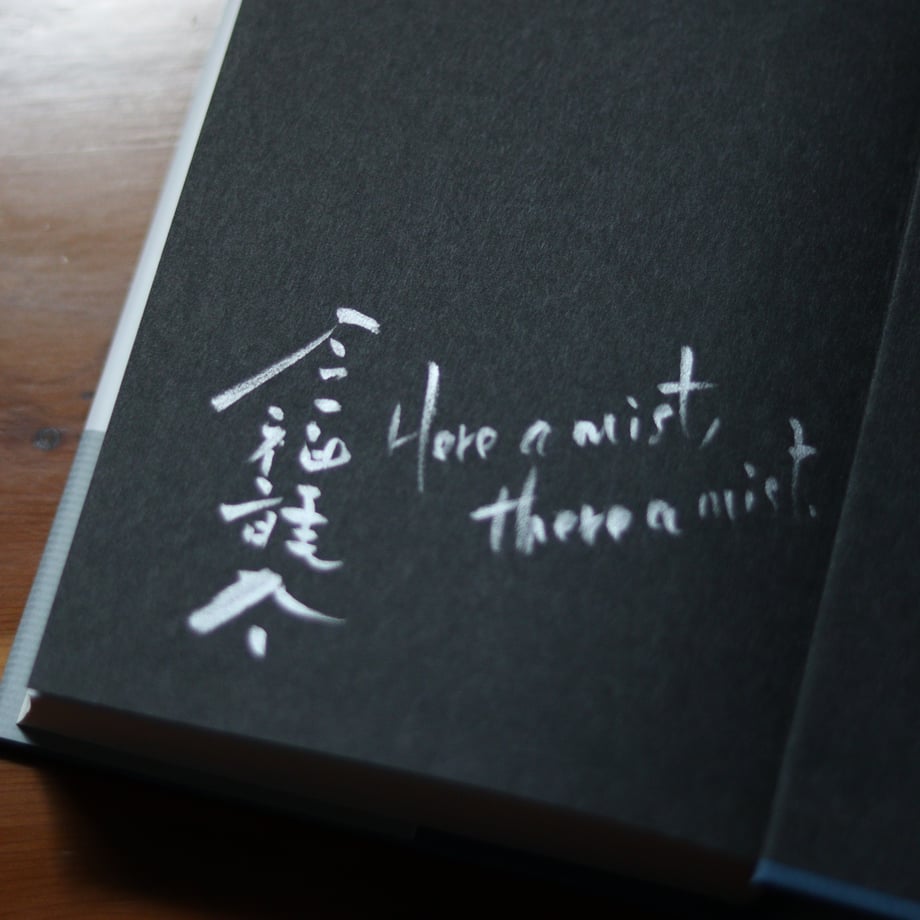 今福龍太
Here a mist,
there a mist.